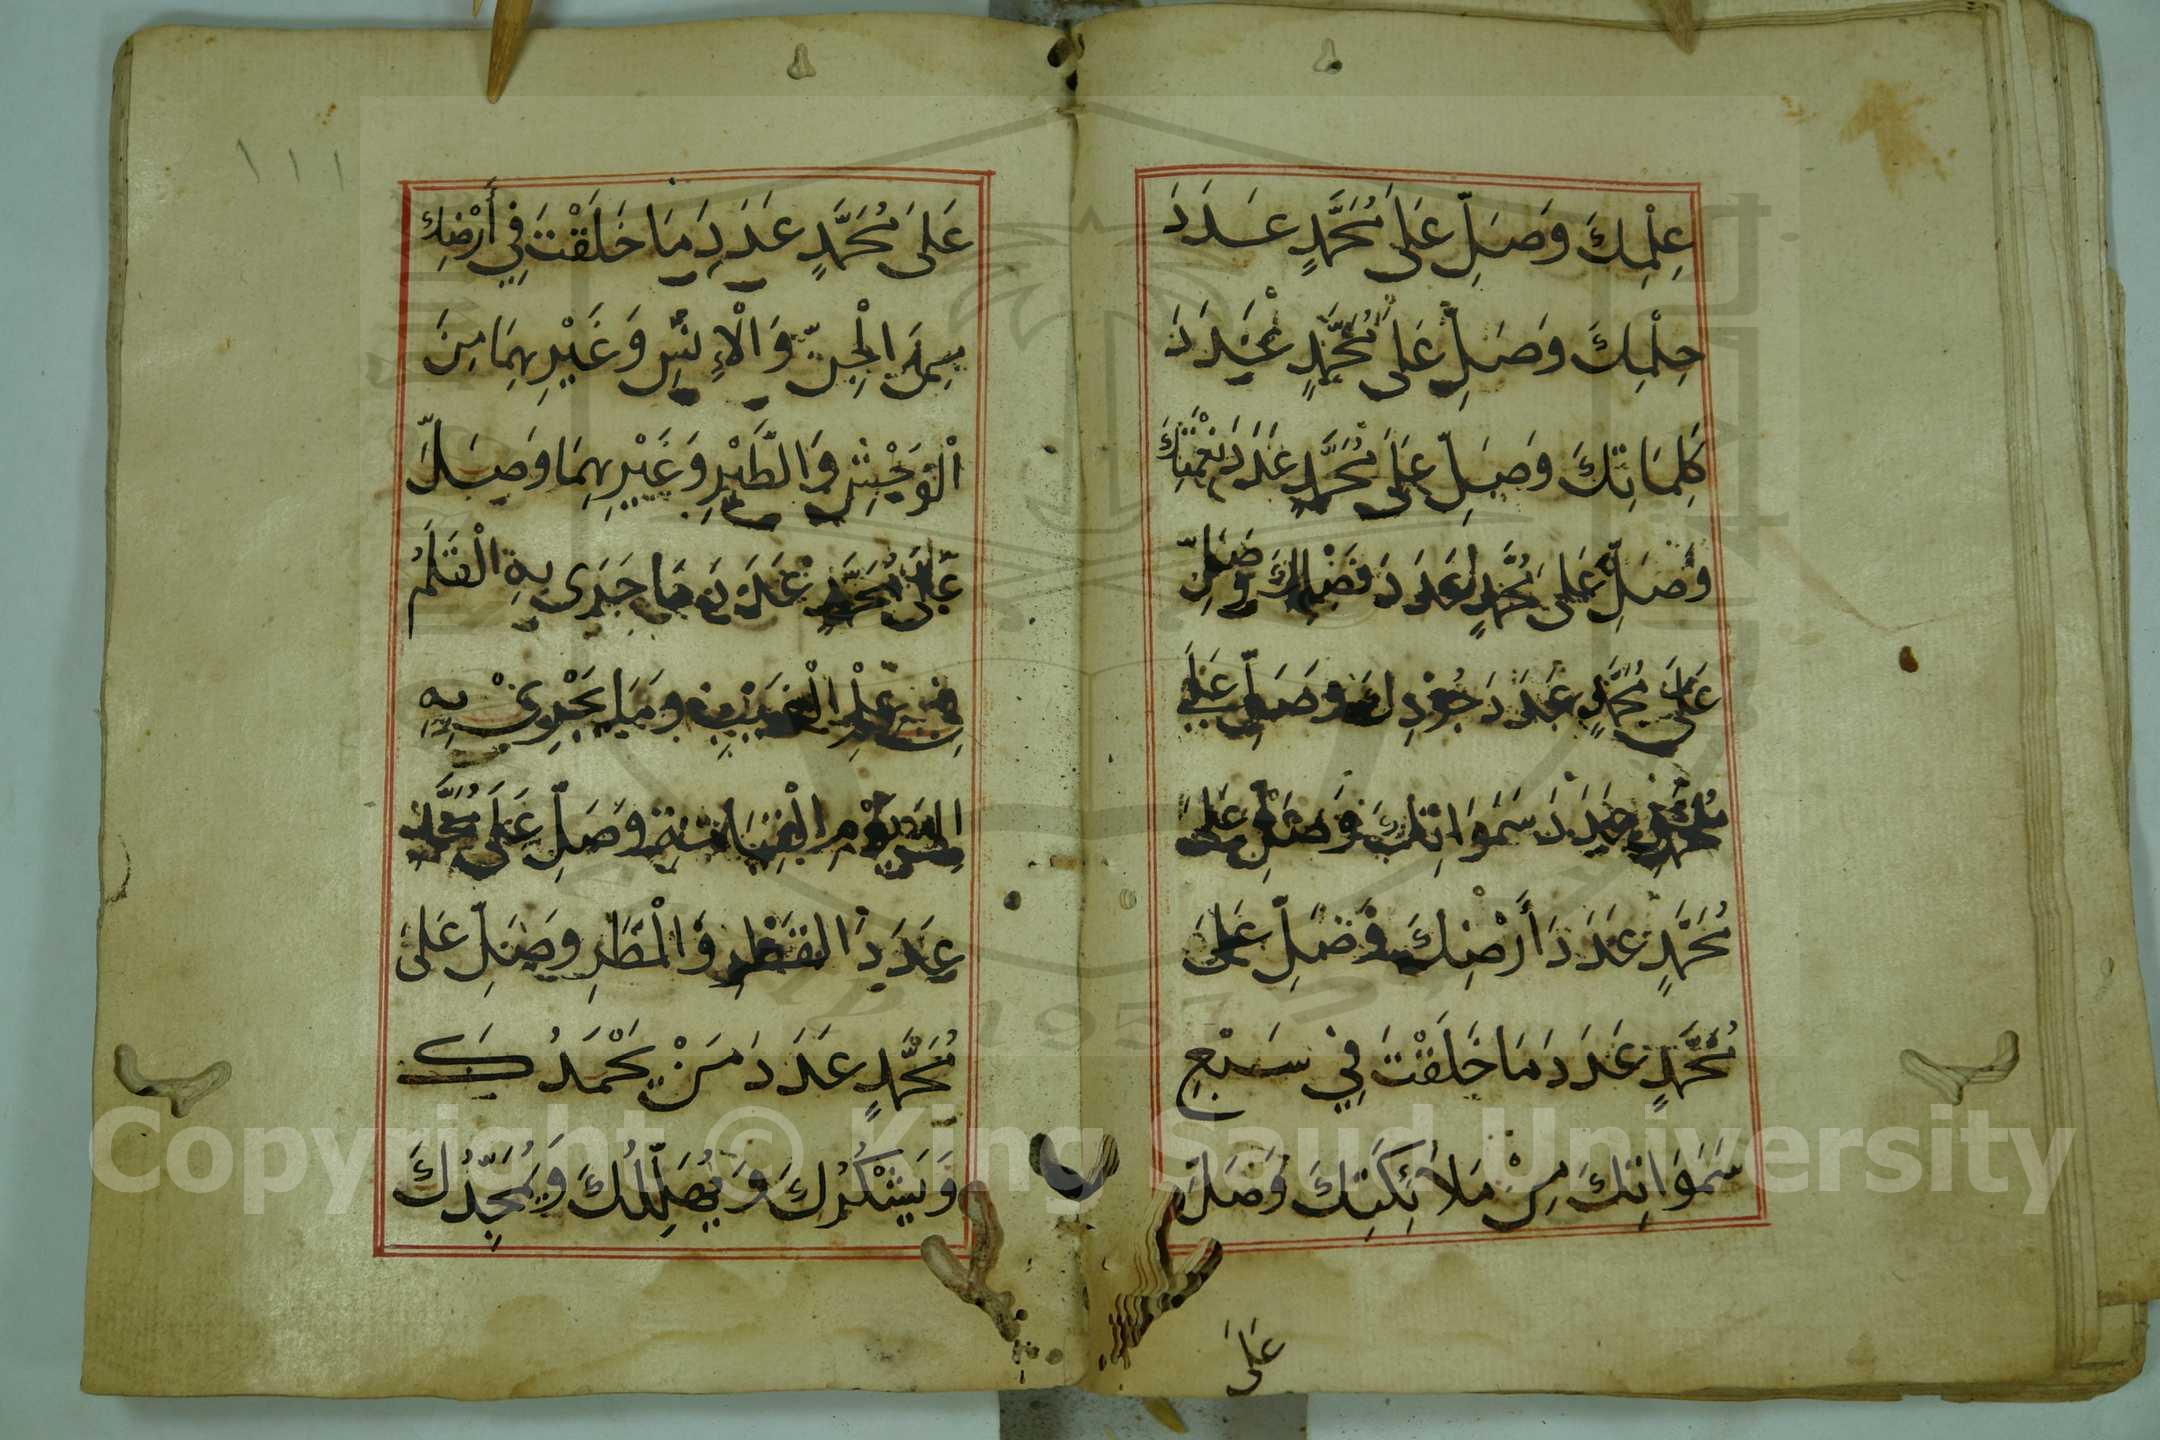 عِلْمِكَ وَصَلِّ عَلَى مُحَمَّدٍ عَدَدَ
حِلْمِكَ وَصَلِّ عَلَى مُحَمَّدٍ عَدَدَ
كَلِمَاتِكَ وَصَلِّ عَلَى مُحَمَّدٍ عَدَدَ نِعْمَتِكَ
وَصَلِّ عَلَى مُحَمَّدٍ عَدَدَ فَضْلِكَ وَصَلِّ
عَلَى مُحَمَّدٍ عَدَدَ جُودِكَ وَصَلِّ عَلَى
مُحَمَّدٍ عَدَدَ سَمَوَاتِكَ وَصَلِّ عَلَى
مُحَمَّدٍ عَدَدَ أَرْضِكَ وَصَلِّ عَلَى
مُحَمَّدٍ عَدَدَ مَا خَلَقْتَ فِي سَبْعِ
سَمَوَاتِكَ مِنْ مَلَائِكَتِكَ وَصَلِّ
عَلَى
١١١
عَلَى مُحَمَّدٍ عَدَدَ مَا خَلَقْتَ فِي أَرْضِكَ
مِنَ الْجِنِّ وَالْإِنْسِ وَغَيْرِهِمَا مِنَ
الْوَحْشِ وَالطَّيْرِ وَغَيْرِهِمَا وَصَلِّ
عَلَى مُحَمَّدٍ عَدَدَ مَا جَرَى بِهِ الْقَلَمُ
فِي عِلْمِ الْغَيْبِ وَمَا يَجْرِي بِهِ
إِلَى يَوْمِ الْقِيَامَةِ وَصَلِّ عَلَى مُحَمَّدٍ
عَدَدَ الْقَطْرِ وَالْمَطَرِ وَصَلِّ عَلَى
مُحَمَّدٍ عَدَدَ مَنْ يَحْمَدُكَ
وَيَشْكُرُكَ وَيُهَلِّلُكَ وَيُمَجِّدُكَ
Copyright © King Saud University
1957